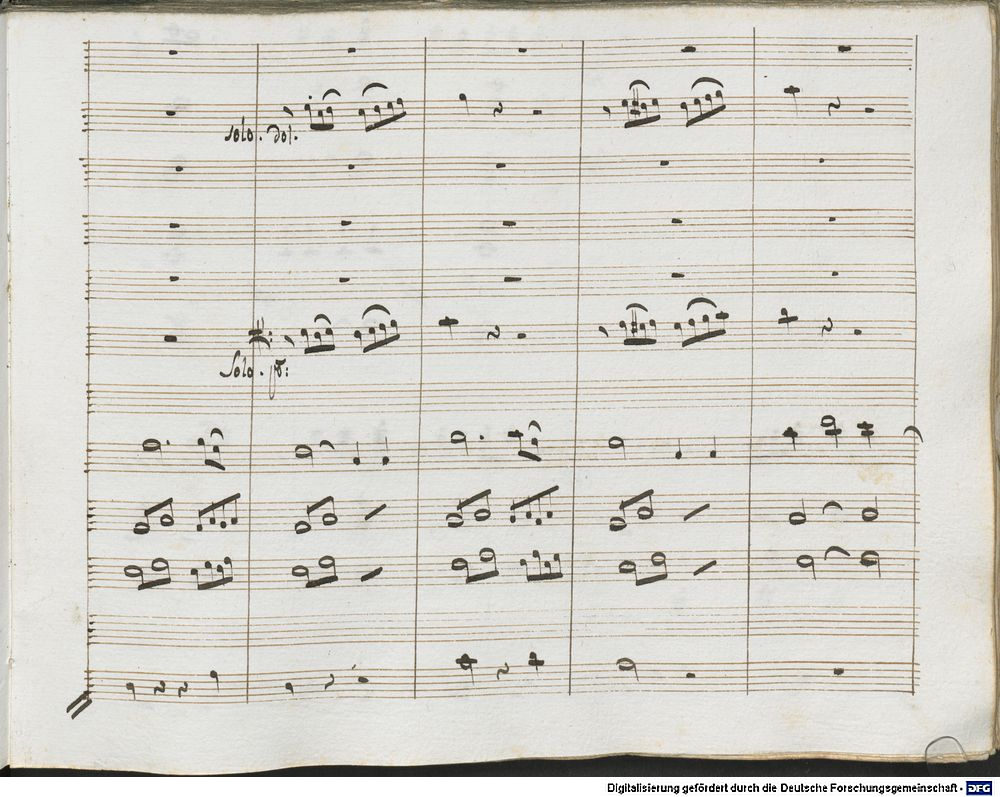 Solo. dol.
Solo. p:
Digitalisierung gefördert durch die Deutsche Forschungsgemeinschaft - DFG